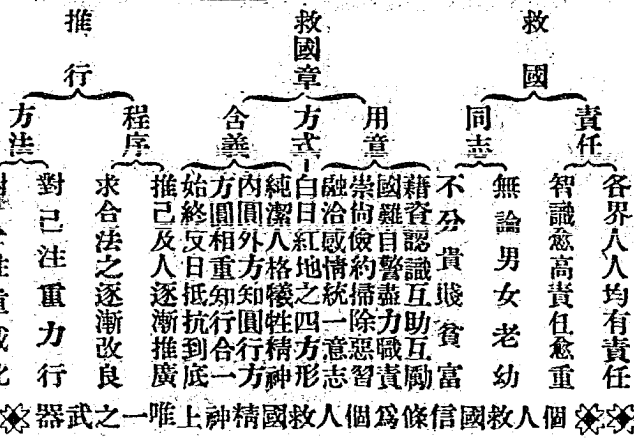 救國
責任
各界人人均有責任
智識愈高責任愈重
同志
無論男女老幼
不分貴賤貧富
救國章
用意
藉資認識互助互勵
國難自警盡力職責
崇尚儉約掃除惡習
融洽感情統一意志
方式
白日紅地之四方形
含義
純潔人格犧牲精神
內圓外方知圓行方
方圓相重知行合一
始終反日抵抗到底
推行
程序
推己及人逐漸推廣
求合法之逐漸改良
方法
對己注重力行
個人救國信條為個人救國精神上唯一之武器